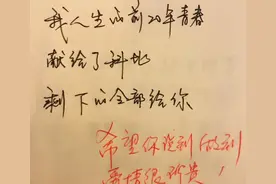 我人生的前20年青春
献给了科比
剩下的全部给你
希望你说到做到
爱情很珍贵！